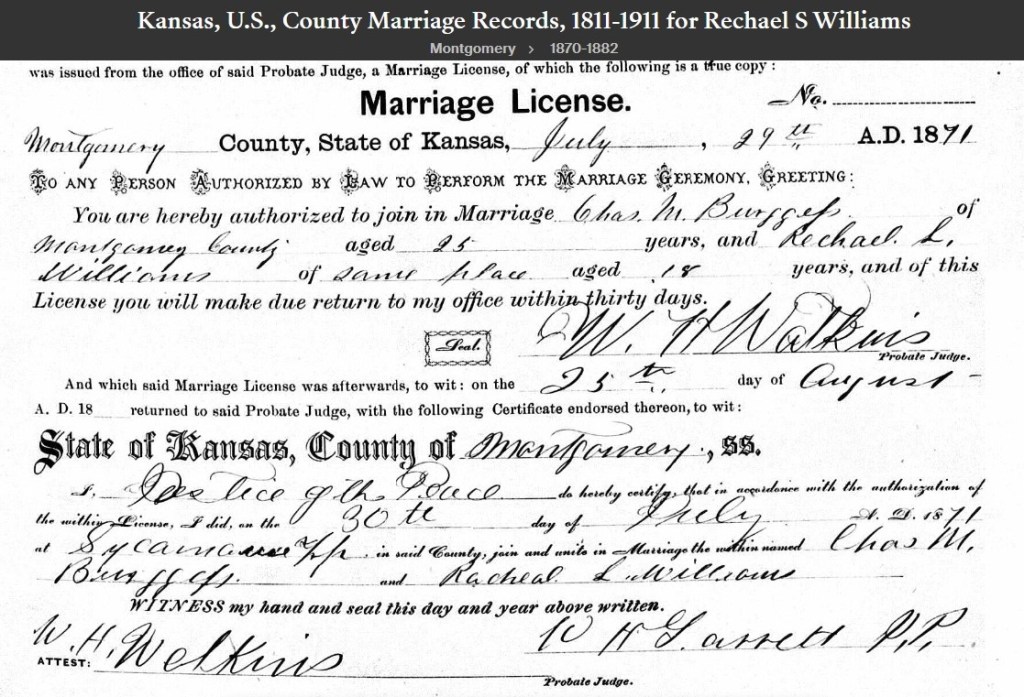 Kansas, U.S., County Marriage Records, 1811-1911 for Rechael S Williams
Montgomery › 1870-1882
was issued from the office of said Probate Judge, a Marriage License, of which the following is a true copy:
Marriage License. No.
Montgomery County, State of Kansas, July, 29th A.D. 1871
To any Person Authorized by Law to Perform the Marriage Ceremony, Greeting:
You are hereby authorized to join in Marriage Chas. M. Burggess of
Montgomery County aged 25 years, and Rechael L.
Williams of same place aged 18 years, and of this
License you will make due return to my office within thirty days.
W. H Watkins
Seal. Probate Judge.
And which said Marriage License was afterwards, to wit: on the 25th day of August
A. D. 18 returned to said Probate Judge, with the following Certificate endorsed thereon, to wit:
State of Kansas, County of Montgomery, SS.
I, Justice of the Peace do hereby certify, that in accordance with the authorization of
the within License, I did, on the 30th day of July A. D. 1871
at Sycamore Tp, in said County, join and unite in Marriage the within named Chas M.
Burggess and Racheal L. Williams
WITNESS my hand and seal this day and year above written.
W. H. Garrett J.P.
ATTEST: W. H. Watkins
Probate Judge.